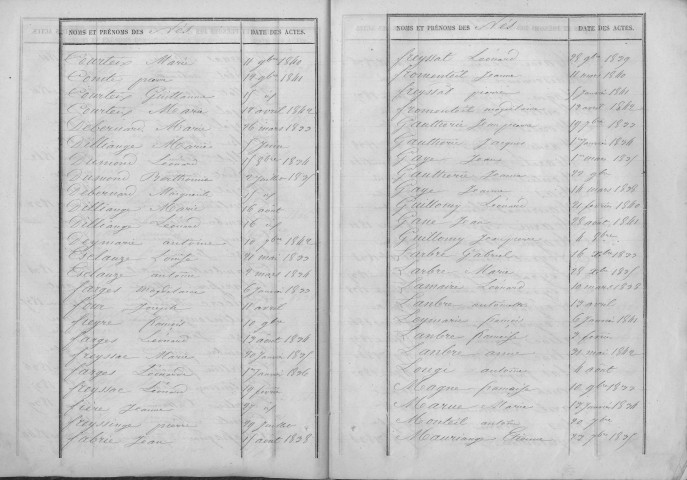 NOMS ET PRÉNOMS DES Nés DATE DES ACTES.
Courteix Marie 11 9bre 1841
Comte pierre 18 9bre 1841
Courteix Guillaume 15 id
Courteix Marie 18 avril 1842
Debernard Marie 26 mars 1822
Delliange Marie 5 Juin
Dumond Léonard 15 8bre 1824
Dumond Berthonne 2 Juillet 1825
Debernard
Delliange Marie 16 avril
Delliange Léonard 16 id
Deymarie antoine 10 7bre 1842
Esclauze Louise 21 mai 1822
Esclauze antoine 9 mars 1824
farges magdelaine 6 Janvier 1822
feix Joseph 11 avril
freyre françois 10 9bre
farges Léonard 13 août 1824
freyssac Marie 20 Janvier 1825
farges Léonarde 17 Janvier 1826
freyssac Léonard 19 février
feix Jeanne 27 id
freyssinge pierre 29 Juillet
fabrie Jean 15 avril 1828
NOMS ET PRÉNOMS DES Nés DATE DES ACTES.
freyssat Léonard 28 9bre 1839
fromenteil Jeanne 11 mars 1840
freyssat pierre 5 Janvier 1841
fromenteil magdelaine 12 avril 1842
Gauttierie Jean pierre 19 7bre 1822
Gauttierie Jacques 17 Janvier 1824
Gage Jean 1er mars 1825
Gauttierie Jeanne 20 9bre
Gage Jeanne 14 mars 1828
Guillomy Léonard 21 février 1840
Gane Jean 28 avril 1840
Guillomy Jean pierre 4 8bre
Larbre Gabriel 16 1822
Larbre Marie 28 1825
Lamaire Léonard 10 mars 1828
Lanbre antoinette 13 avril
Leymarie françois 6 Janvier 1841
Lanbre françoise 2 février
Lanbre anne 21 mai 1842
Longe antoine 4 août
Magne françoise 10 9bre 1822
Marue Marie 12 Janvier 1824
Monteil antoine 20 7bre
Mauriange Etienne 22 7bre 1825